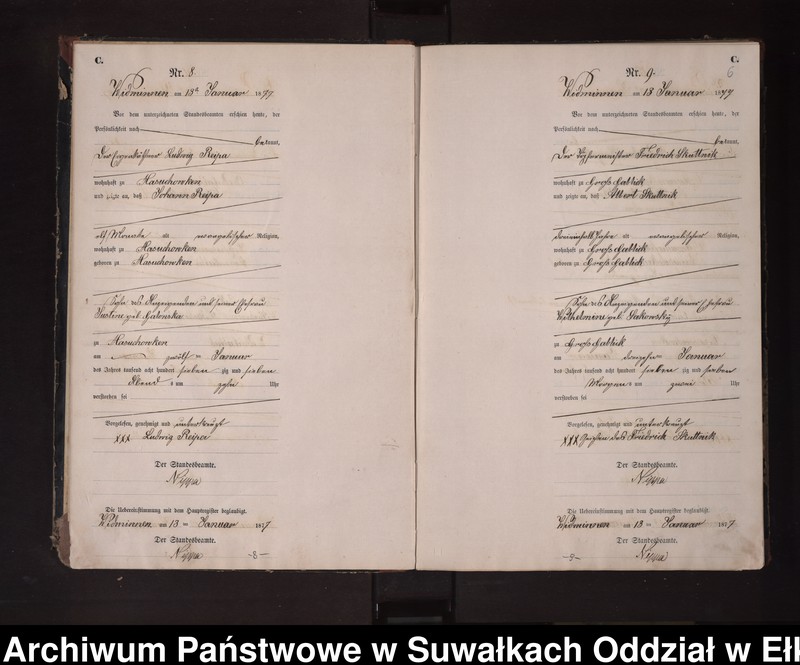 C.
Nr. 8.
Widminnen am 13ten Januar 1877
Vor dem unterzeichneten Standesbeamten erschien heute, der
Persönlichkeit nach
bekannt,
Der Eigenkäthner Ludwig Reipa
wohnhaft zu Masuchowken
und zeigte an, daß Johann Reipa
elf Monate alt evangelischer Religion,
wohnhaft zu Masuchowken
geboren zu Masuchowken
Sohn des Anzeigenden und seiner Ehefrau
Justine geb.
zu Masuchowken
am zwölften Januar
des Jahres tausend acht hundert sieben zig und sieben
Abend s um zehn Uhr
verstorben sei
Vorgelesen, genehmigt und unterkreuzt
XXX Ludwig Reipa
Der Standesbeamte.
Die Uebereinstimmung mit dem Hauptregister beglaubigt.
Widminnen am 13 ten Januar 1877
Der Standesbeamte.
-8-
C.
6
Nr. 9.
Widminnen am 13 Januar 1877
Vor dem unterzeichneten Standesbeamten erschien heute, der
Persönlichkeit nach
bekannt,
Der Friedrich Skuttnik
wohnhaft zu Groß Gablick
und zeigte an, daß Albert Skuttnik
alt evangelischer Religion,
wohnhaft zu Groß Gablick
geboren zu Groß Gablick
Sohn des Anzeigenden und seiner Ehefrau
Wilhelmine geb.
zu Groß Gablick
am Januar
des Jahres tausend acht hundert sieben zig und sieben
Morgen s um zwei Uhr
verstorben sei
Vorgelesen, genehmigt und unterkreuzt
XXX Zeichen des Friedrich Skuttnik
Der Standesbeamte.
Die Uebereinstimmung mit dem Hauptregister beglaubigt.
Widminnen am 13 ten Januar 1877
Der Standesbeamte.
-9-
Archiwum Państwowe w Suwałkach Oddział w Ełk